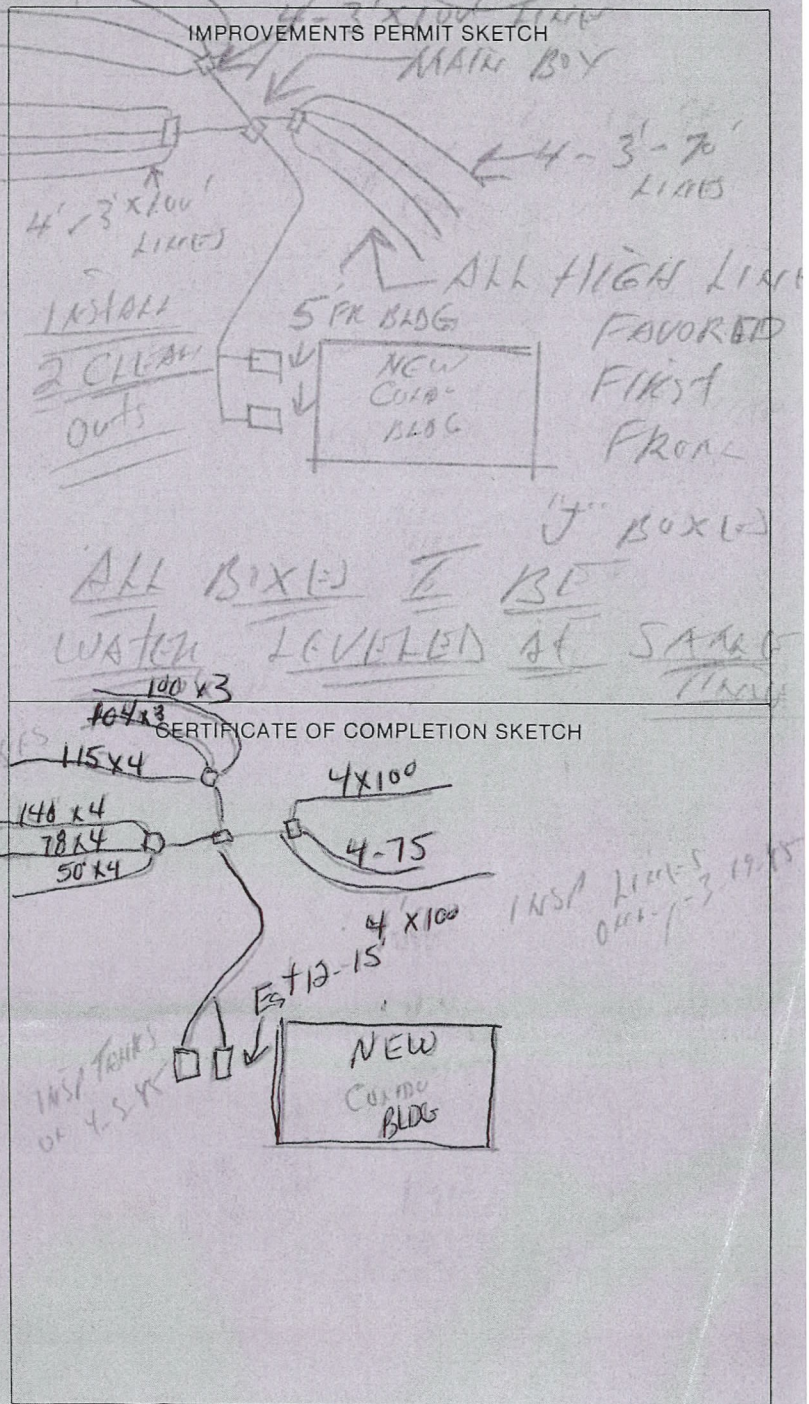 4-3'x100' LINE
IMPROVEMENTS PERMIT SKETCH
MAIN BOX
4-3'-70'
LINES
4'-3'x100'
LINES
ALL HIGH LINE
FAVORED
FIRST
FROM
"J" BOX(E)
INSTALL
2 CLEAN
OUTS
5' FR BLDG
NEW
BLDG
ALL BOX(E) TO BE
WATER LEVELED AT SAME
TIME
100 x 3
104x3
CERTIFICATE OF COMPLETION SKETCH
115 x 4
4x100
140 x 4
78x4
4-75
50 x4
4' x100
INSP LINES
Est 12-15'
INSP TANKS
NEW
BLDG